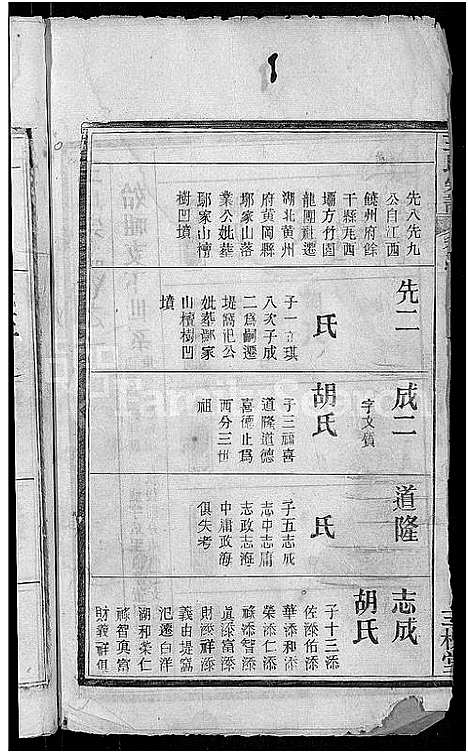 先八先九
公自江西
饒州府餘
干縣瓦西
壩方竹園
龍團社遷
湖北黃州
府黃岡縣
鄢家山落
業公妣葬
鄢家山檀
樹凹墳
先二
氏
子一立琪
八次子成
二為嗣遷
堤窩汜公
妣葬鄢家
山檀樹凹
墳
成二
字文質
胡氏
子三福喜
道隆道德
喜德止為
西分三世
祖
道隆
氏
子五志成
志中志肅
志政志海
中肅政海
俱失考
志成
胡氏
子十三添
佐添佑添
華添和添
榮添仁添
祿添智添
真添富添
財添祥添
義由堤窩
汜遷白洋
湖和榮仁
祿智真富
財義祥俱